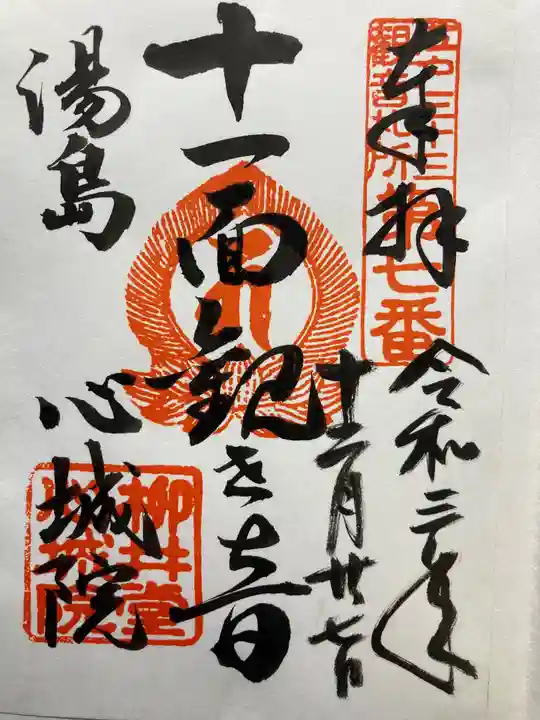 奉拝
江戸三十三
観音札所第七番
令和三年
十二月廿七日
十一面観世音
湯島
心城院
柳井堂
心城院